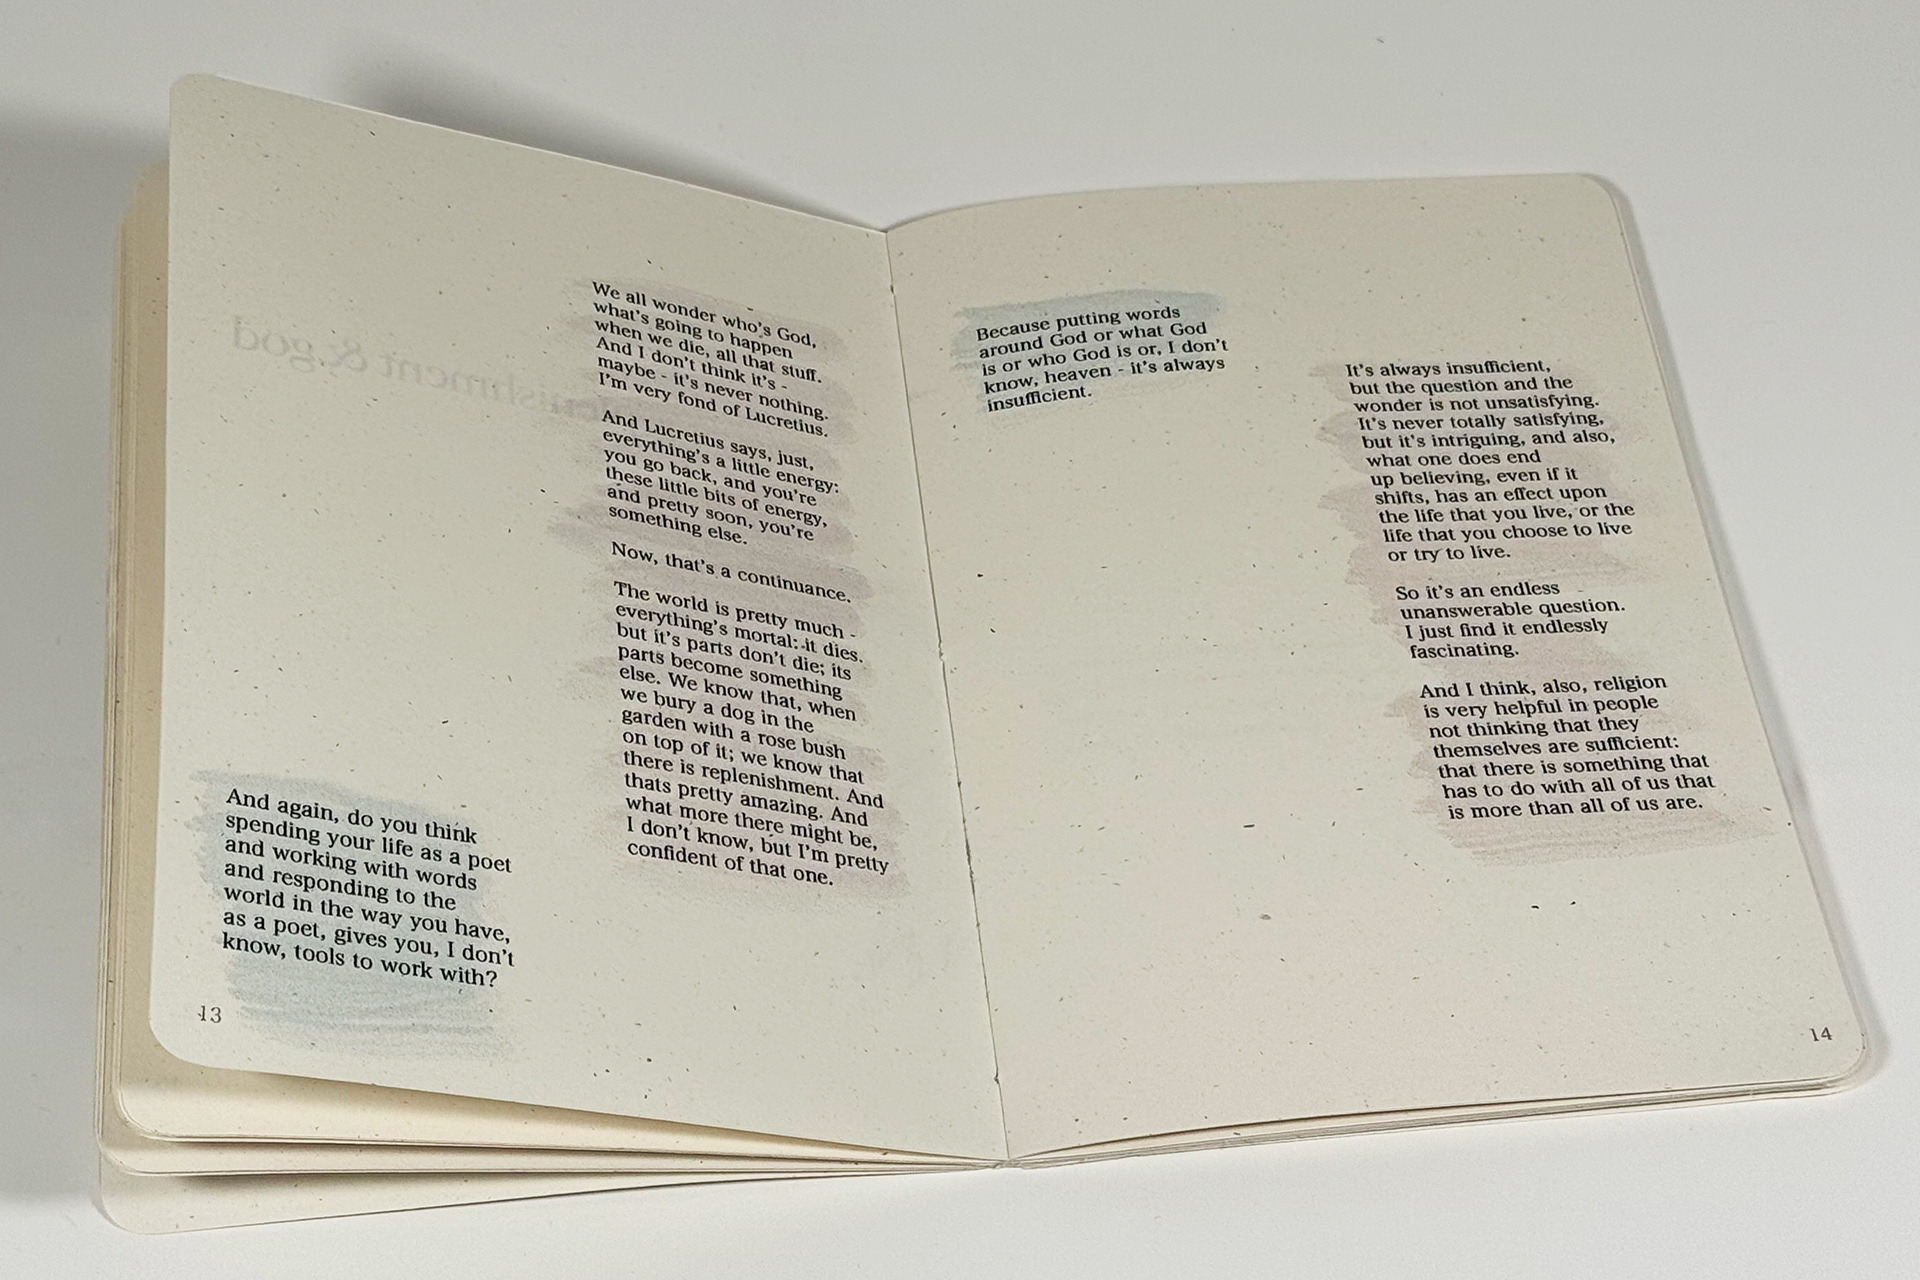 We all wonder who's God,
what's going to happen
when we die, all that stuff.
And I don't think it's -
maybe - it's never nothing.
I'm very fond of Lucretius.
And Lucretius says, just,
everything's a little energy:
you go back, and you're
these little bits of energy,
and pretty soon, you're
something else.
Now, that's a continuance.
The world is pretty much -
everything's mortal: it dies.
but it's parts don't die; its
parts become something
else. We know that, when
we bury a dog in the
garden with a rose bush
on top of it; we know that
there is replenishment. And
thats pretty amazing. And
what more there might be,
I don't know, but I'm pretty
confident of that one.
And again, do you think
spending your life as a poet
and working with words
and responding to the
world in the way you have,
as a poet, gives you, I don't
know, tools to work with?
13
Because putting words
around God or what God
is or who God is or, I don't
know, heaven - it's always
insufficient.
It's always insufficient,
but the question and the
wonder is not unsatisfying.
It's never totally satisfying,
but it's intriguing, and also,
what one does end
up believing, even if it
shifts, has an effect upon
the life that you live, or the
life that you choose to live
or try to live.
So it's an endless
unanswerable question.
I just find it endlessly
fascinating.
And I think, also, religion
is very helpful in people
not thinking that they
themselves are sufficient:
that there is something that
has to do with all of us that
is more than all of us are.
14